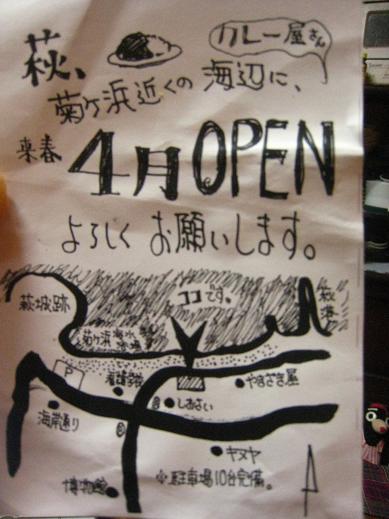 カレー屋さん
萩、
菊ケ浜近くの海辺に、
来春
4月OPEN
よろしくお願いします。
ココです。
萩城跡
萩港
菊ケ浜海水浴場
P
看護学校
やまざき屋
しおさい
海岸通り
キヌヤ
※駐車場10台完備。
博物館